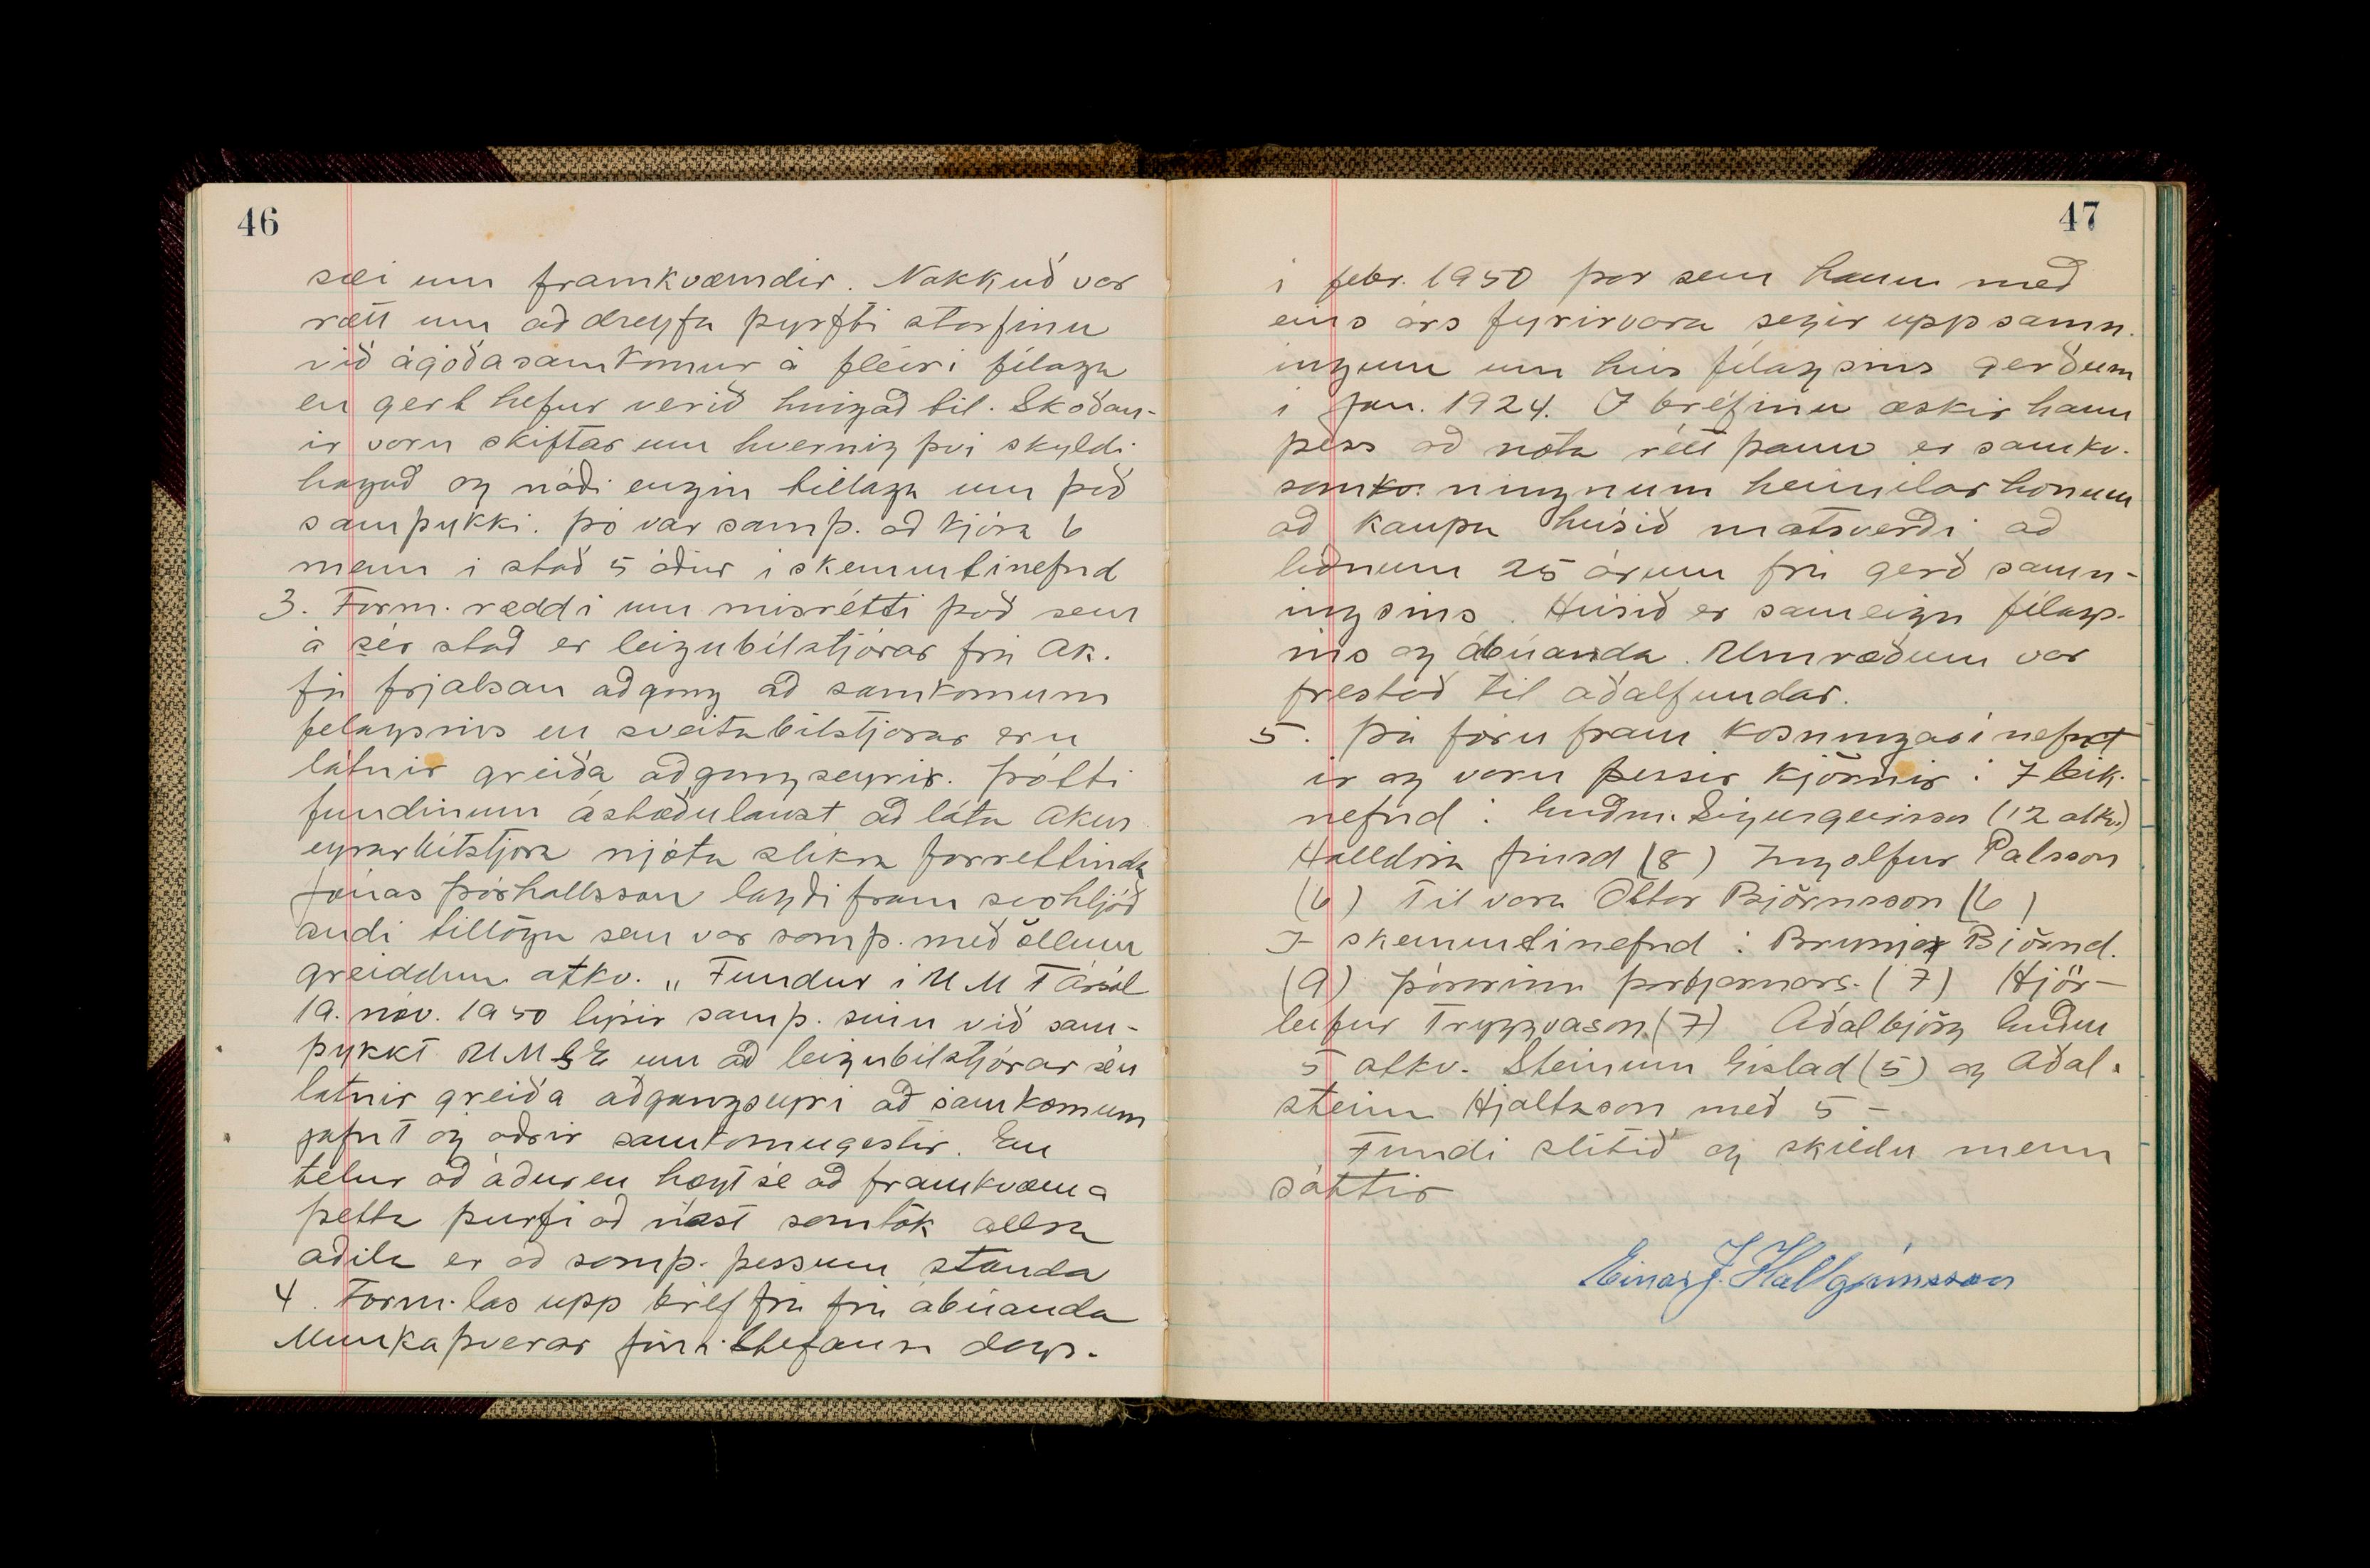 46
sæi um framkvæmdir. Nokkuð var
rætt um að dreyfa þyrfti starfinu
við ágóðasamkomur á fleiri félaga
en gert hefur verið hingað til. Skoðan-
ir voru skiftar um hvernig því skyldi
hagað og náði engin tillaga um það
samþykki. þó var samþ. að kjósa 6
menn í stað 5 áður í skemmtinefnd
3. Form. ræddi um misrétti það sem
á sér stað er leigubílstjórar frá Ak.
fá frjálsan aðgang að samkomum
félagsins en sveitabílstjórar eru
látnir greiða aðgangseyrir. Þótti
fundinum ástæðulaust að láta Akur
eyrarbílstjóra njóta slíkra forréttinda
Jónas Þórhallsson lagði fram svohljóð
andi tillögu sem var samþ. með öllum
greiddum atkv. „Fundur í U M F Ársól
19. nóv. 1950 lýsir samþ. sinu við sam-
þykkt U M S E um að leigubílstjórar séu
látnir greiða aðgangseyri að samkomum
jafnt og aðrir samkomugestir. En
telur að áður en hægt sé að framkvæma
þetta þurfi að nást samtök allra
aðila er að samþ. þessum standa
4. Form. las upp bréf frá frá ábúanda
Munkaþverár frú. Stefaun dags.
47
í febr. 1950 þar sem hann með
eins árs fyrirvara segir upp samn.
ingum um hús félagsins gerðum
í jan. 1924. Í bréfinu æskir hann
þess að nota rétt þann er samkv.
samkv. ningnum heimilar honum
að kaupa húsið matsverði að
liðnum 25 árum frá gerð samn-
ingsins. Húsið er sameign félags-
ins og ábúanda. Umræðum var
frestað til aðalfundar.
5. Þá fóru fram kosningar í nefnd
ir og voru þessir kjörnir: Í leik.
nefnd: Guðm. Sigurgeirsson (12 atkv.)
Halldóra Finnsd (8) Ingólfur Pálsson
(6) Til vara Óttar Björnsson (6)
Í skemmtinefnd: Brynja Björnd.
(9) Þórarinn Þorbjarnars. (7) Hjör-
leifur Tryggvason (7) Aðalbjörg Guðm
5 atkv. Steinunn Gíslad (5) og Aðal.
steinn Hjaltason með 5 -
Fundi slitið og skildu menn
sáttir
Einar J. Hallgrímsson